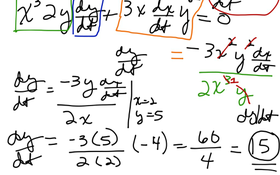 x³ 2y dy/dt + 3x dx/dt y = 0
dy/dt = -3x²y² dx/dt / 2x³y
dy/dt = -3y dx/dt / 2x | x=2 y=5
dy/dt
dy/dt = -3(5) / 2(2) (-4) = 60/4 = 15